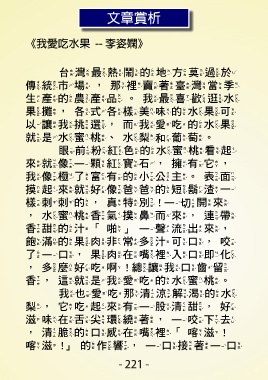 文章賞析
《我愛吃水果 -- 李姿嫻》
台灣最熱鬧的地方莫過於
傳統市場，那裡賣著臺灣當季
生產的農產品。我最喜歡逛水
果攤，各式各樣美味的水果可
以讓我挑選，而我愛吃的水果
就是水蜜桃、水梨和葡萄。
眼前粉紅色的水蜜桃看起
來就像一顆紅寶石，擁有它，
我像極了富有的小公主。表面
摸起來就好像爸爸的短鬍渣一
樣刺刺的，真特別！一切開來
，水蜜桃香氣撲鼻而來，連帶
香甜的汁「啪」一聲流出來，
飽滿的果肉非常多汁可口，咬
了一口，果肉在嘴裡入口即化
，多麼好吃啊！總讓我口齒留
香，這就是我愛吃的水蜜桃。
我也愛吃那清涼解渴的水
梨，它吃起來有一股清甜，好
滋味在舌尖環繞著，一咬下去
，清脆的口感在嘴裡「喀滋！
喀滋！」的作響，一口接著一口
- 221 -